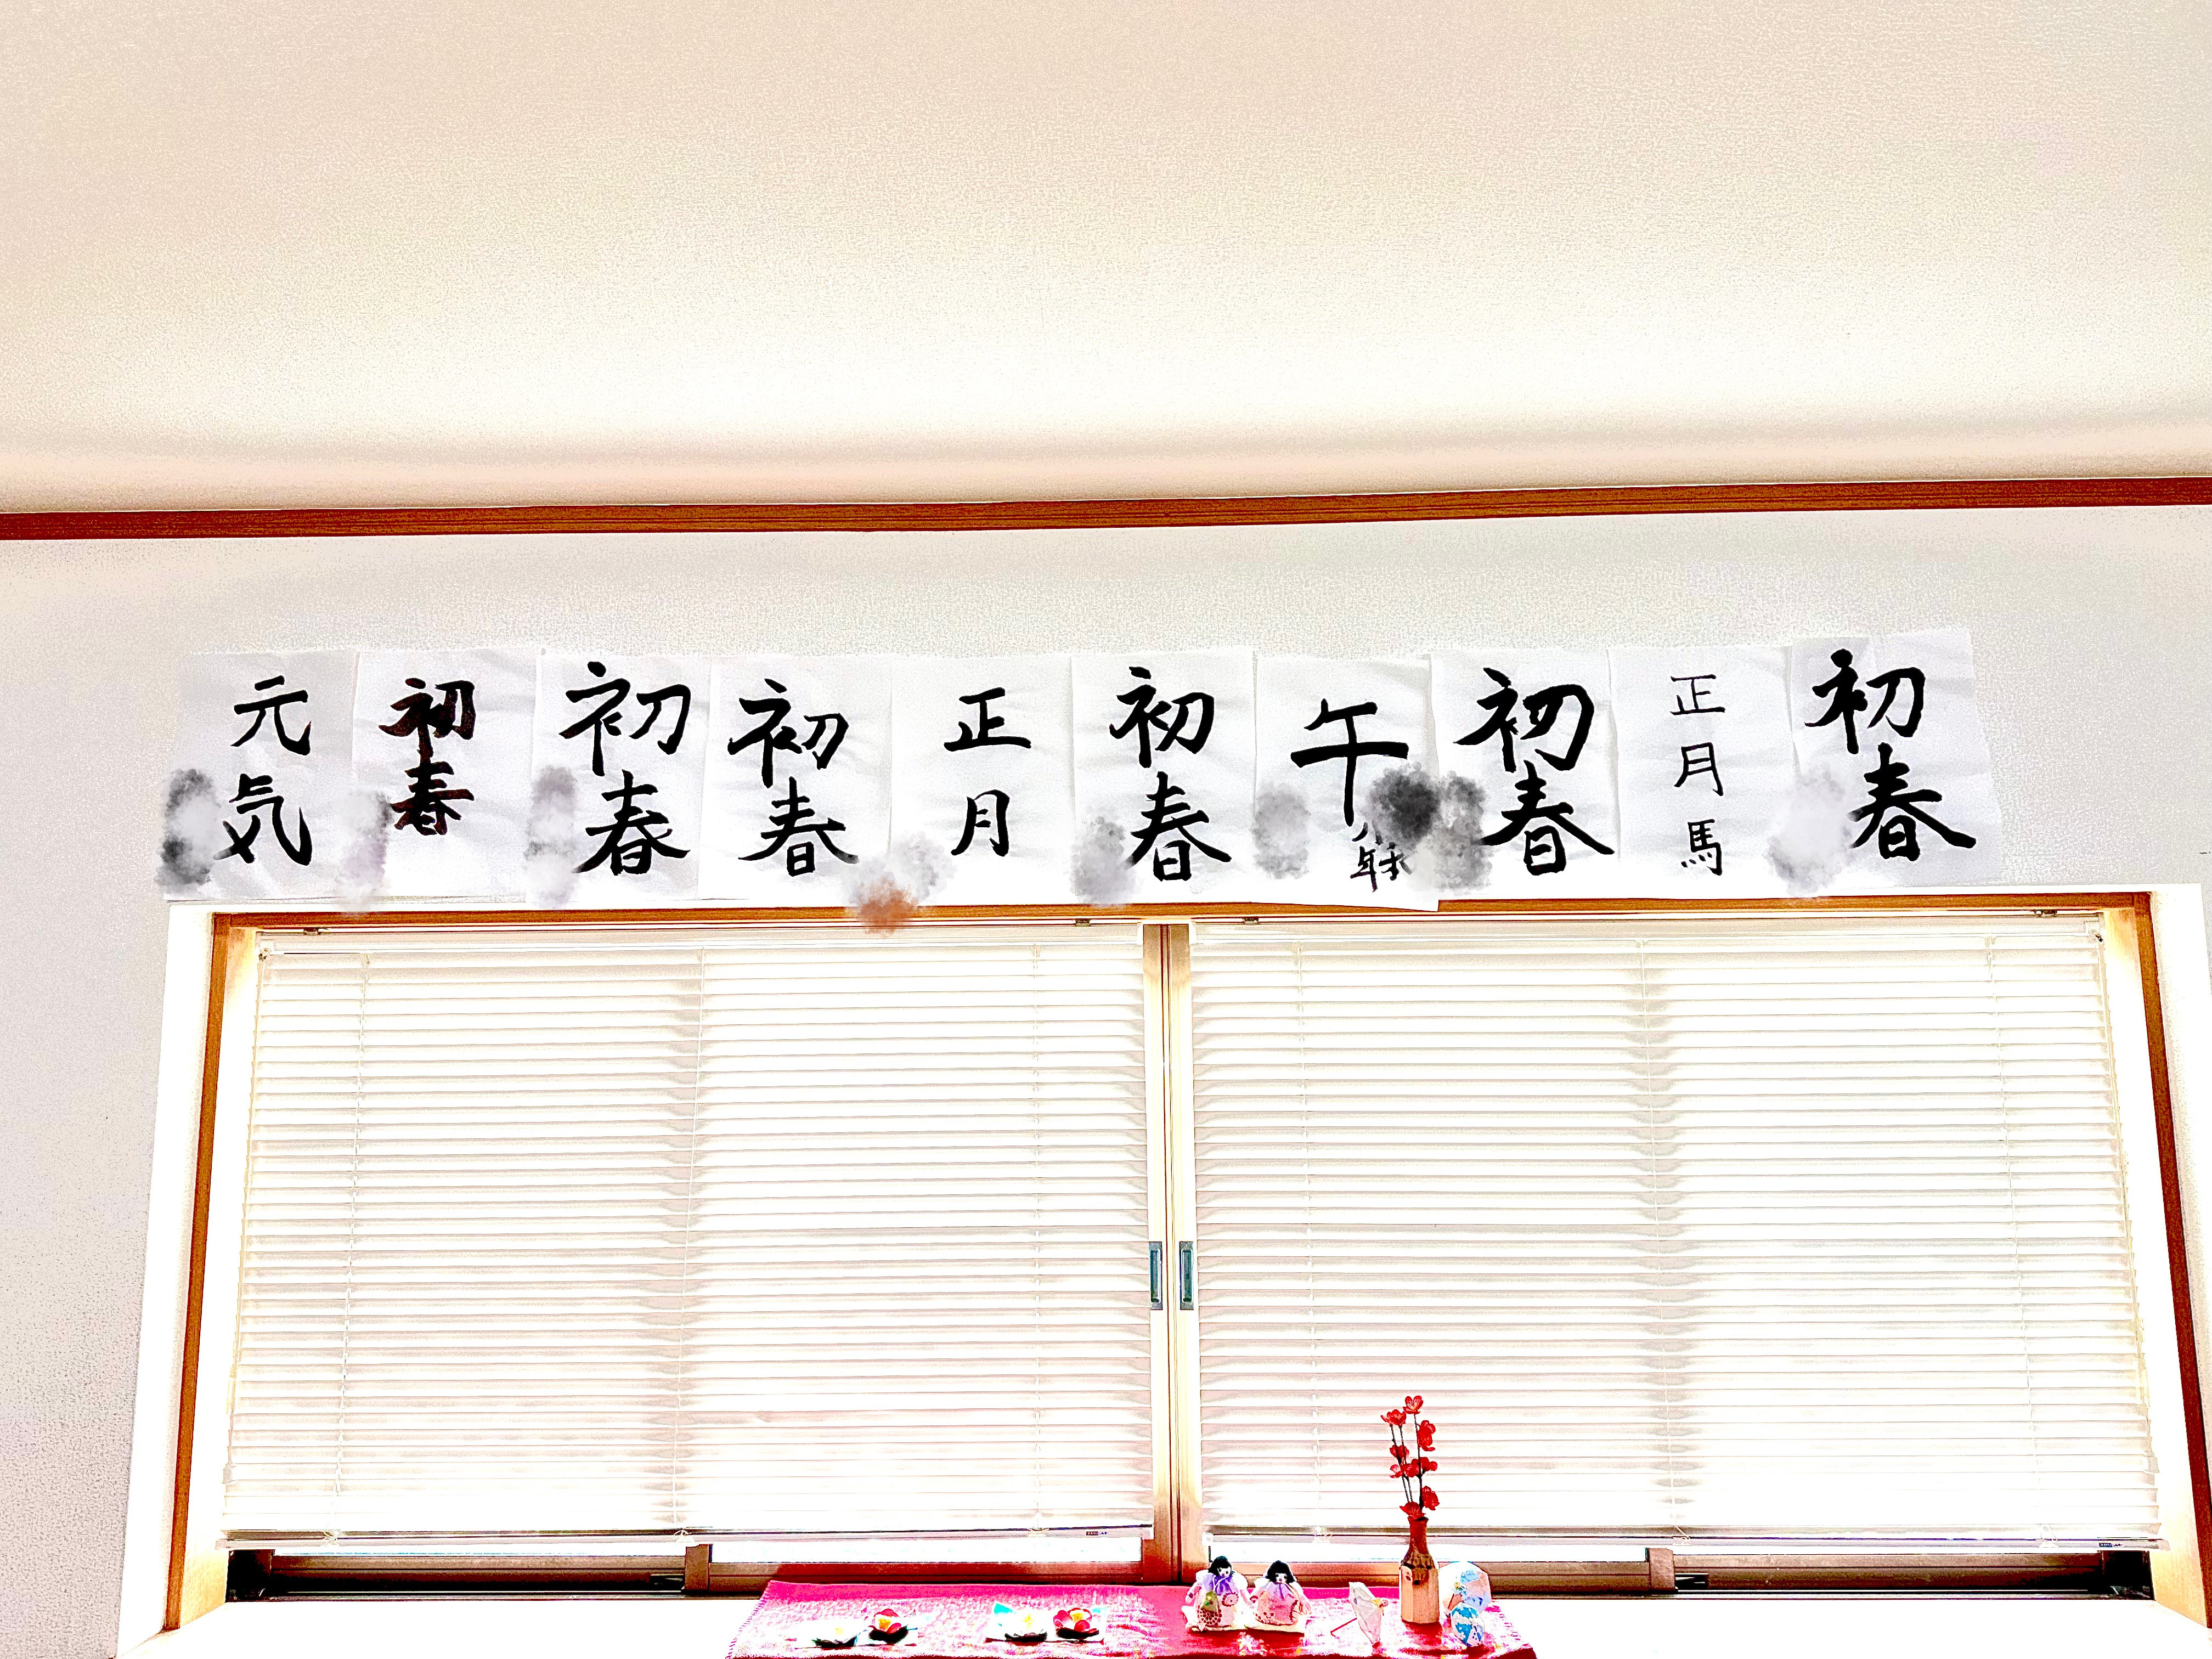 元気
初春
初春
初春
正月
初春
午
初春
正月馬
初春